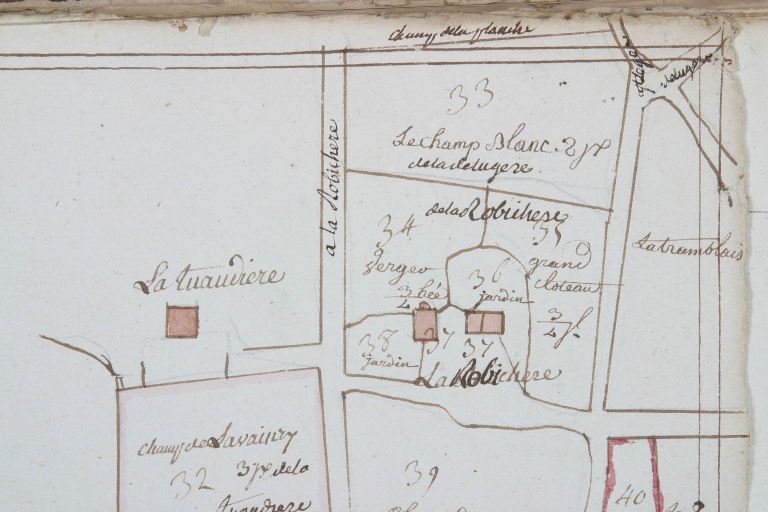 champ de la planche
33
Le champ Blanc. 2 jx
de la delugere
a la Robichere
de la Robichere
34
Verger
35
grand
cloteau
36
jardin
La tramblais
La tuaudiere
38
jardin
37
37
La Robichere
champ de Lavainry
32
3 jx de la
tuaudiere
39
40